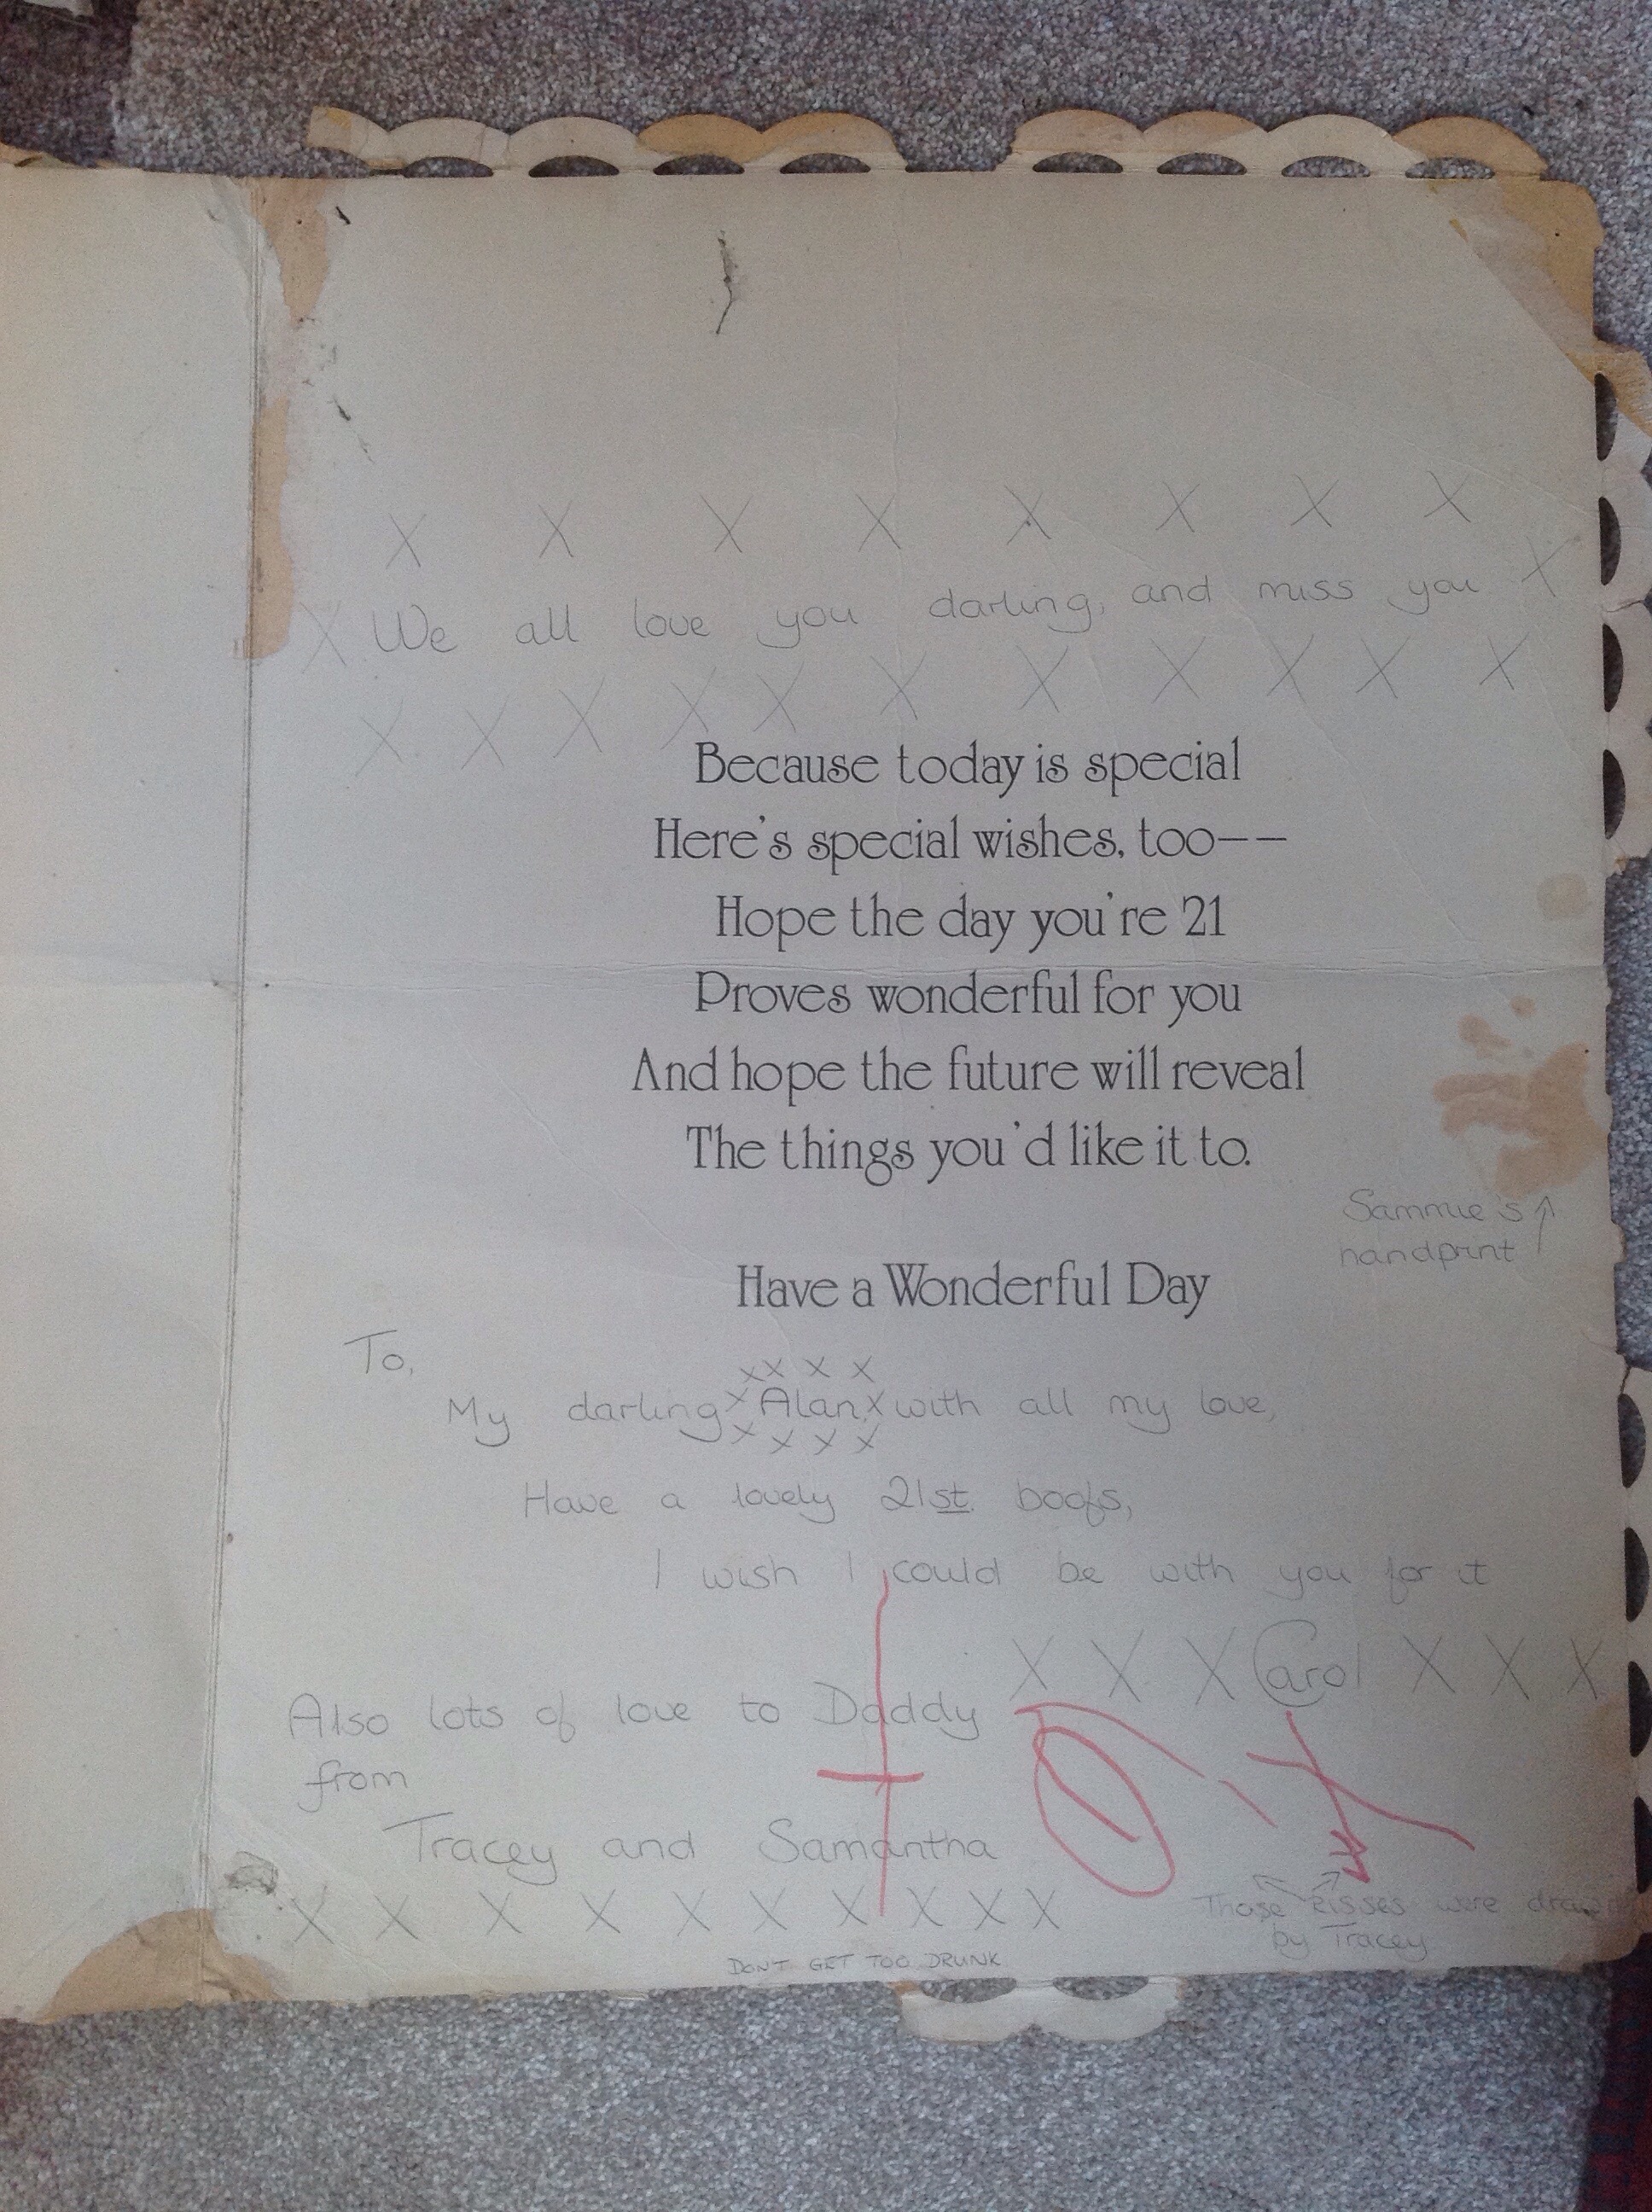 X X X X X X X X
X We all love you darling, and miss you X
X X X X X X X X X X X
Because today is special
Here's special wishes, too--
Hope the day you're 21
Proves wonderful for you
And hope the future will reveal
The things you'd like it to.
Sammie's
handprint
Have a Wonderful Day
To,
X X X X
My darling X Alan X with all my love,
X X X X
Have a lovely 21st. boofs,
I wish I could be with you for it
X X X Carol X X X
Also lots of love to Daddy
from
Tracey and Samantha
X X X X X X X X X X
Those kisses were drawn
by Tracey
DONT GET TOO DRUNK